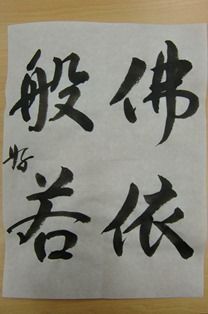 佛依
般若
好